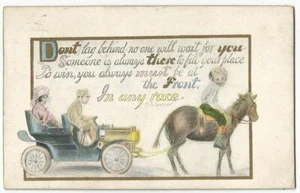 Dont lag behind no one will wait for you
Someone is always there to fill your place
To win, you always must be at
the Front,
In any race.